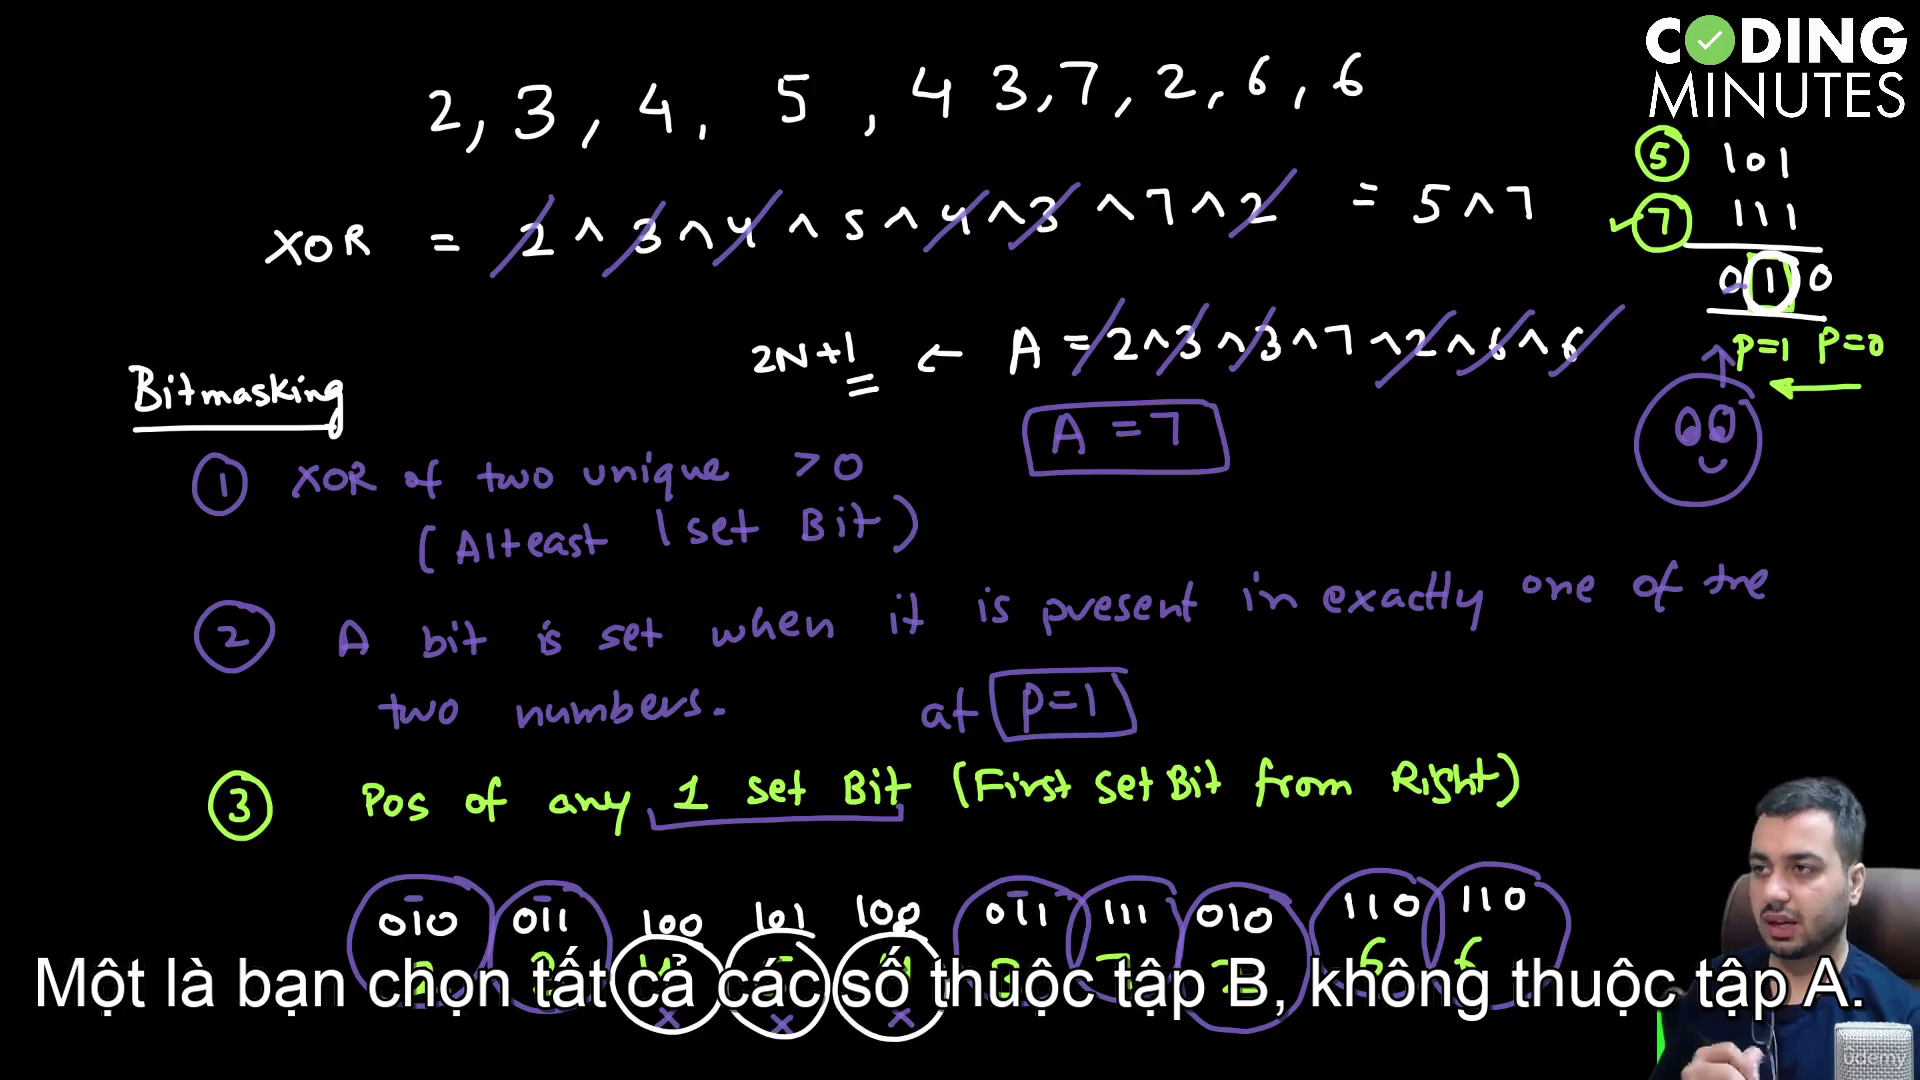 CODING
MINUTES
2, 3, 4, 5, 4 3, 7, 2, 6, 6
5 101
7 111
010
P=1 P=0
XOR = 2 ^ 3 ^ 4 ^ 5 ^ 4 ^ 3 ^ 7 ^ 2 = 5 ^ 7
2N+1 ← A = 2 ^ 3 ^ 3 ^ 7 ^ 2 ^ 6 ^ 6
Bitmasking
A = 7
1 XOR of two unique > 0
(Alteast 1 set Bit)
2 A bit is set when it is present in exactly one of the
two numbers. at P=1
3 Pos of any 1 set Bit (First Set Bit from Right)
010 011 100 101 100 011 111 010 110 110
6 6
Một là bạn chọn tất cả các số thuộc tập B, không thuộc tập A.
x x x
ûdemy